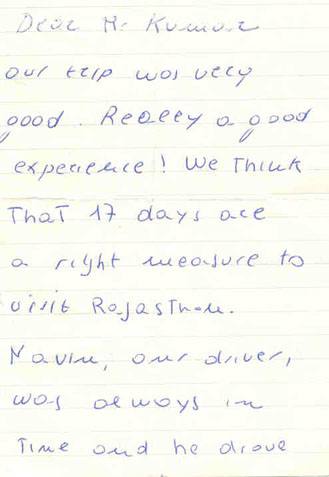 Dear Mr Kumar
our trip was very
good. Really a good
experience! We Think
That 17 days are
a right measure to
visit Rajasthan.
Navin, our driver,
was always in
Time and he drove